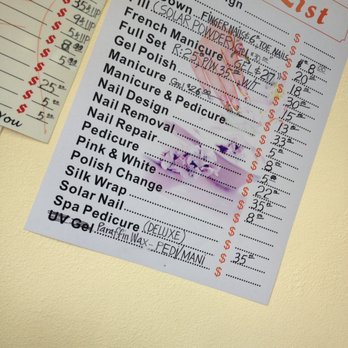 List
Design
FINGER NAILS & TOE NAILS $ 8.00
Fill (SOLAR POWDER) $ 20
French Manicure $ 18
Full Set R: 25 $ 30
Gel Polish $ 15
Manicure
Manicure & Pedicure $ 33
Nail Design $ 5
Nail Removal $ 8
Nail Repair $ 5
Pedicure $ 22
Pink & White $ 35
Polish Change $ 8
Silk Wrap $
Solar Nail $
Spa Pedicure (DELUXE) $ 35
UV Gel Paraffin Wax - PEDI/MANI $
35 & UP
5 & UP
$ 9 & UP
$ 8
$ 5
$
$ 25
$ 5
$ 5
You